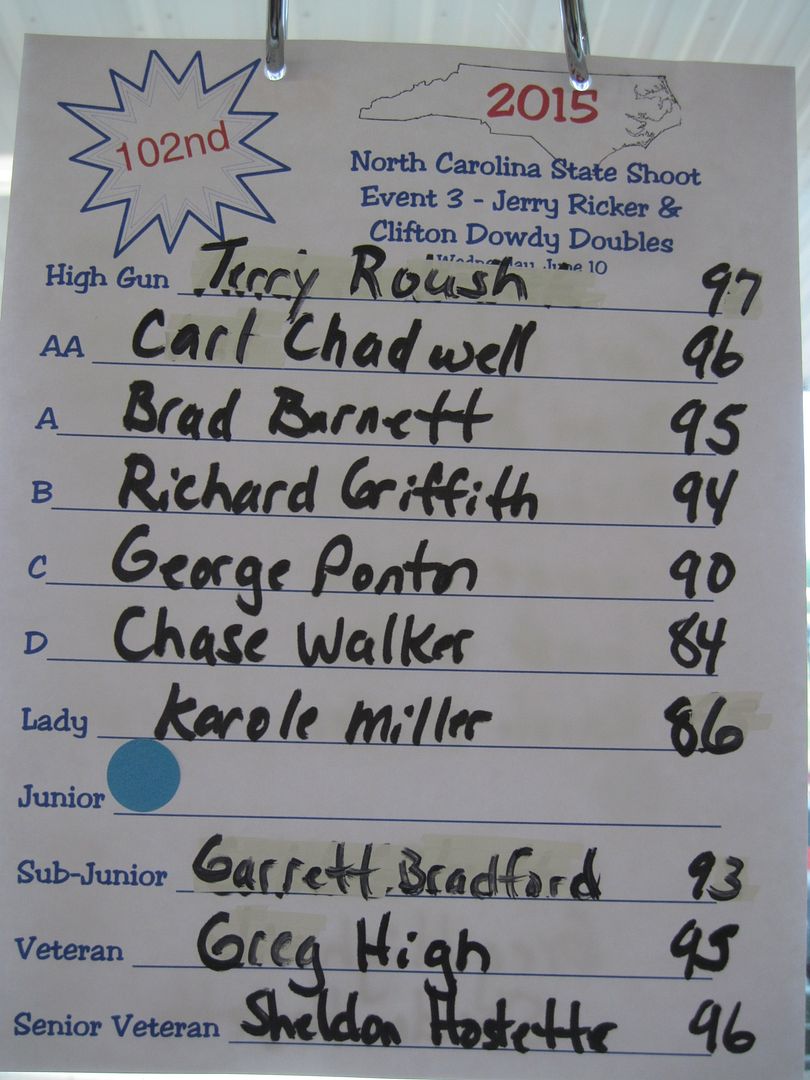 102nd
2015
North Carolina State Shoot
Event 3 - Jerry Ricker &
Clifton Dowdy Doubles
Wednesday, June 10
High Gun Terry Roush 97
AA Carl Chadwell 96
A Brad Barnett 95
B Richard Griffith 94
C George Ponton 90
D Chase Walker 84
Lady Karole Miller 86
Junior
Sub-Junior Garrett Bradford 93
Veteran Greg High 95
Senior Veteran Sheldon Hostetter 96